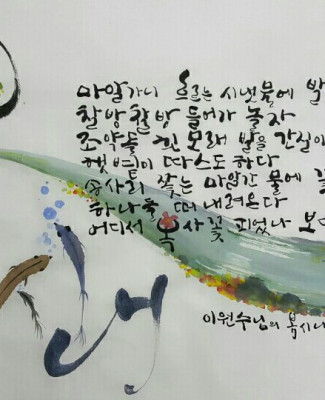 마알가니 흐르는 시냇물에
찰방찰방 들어가 놀자
조약돌 흰모래 발을 간질이
햇볕이 따스도 하다
송사리 쫓는 마알간 물에
하나둘 떠내려온다
어디서 복사꽃 피었나 보
이원수님의 봄시